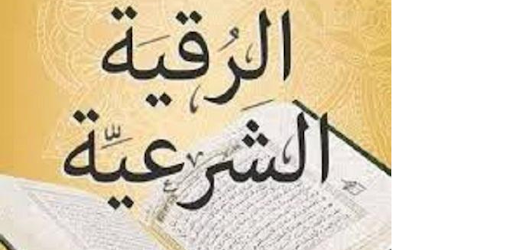 الرُقيَة
الشَرعيَّة